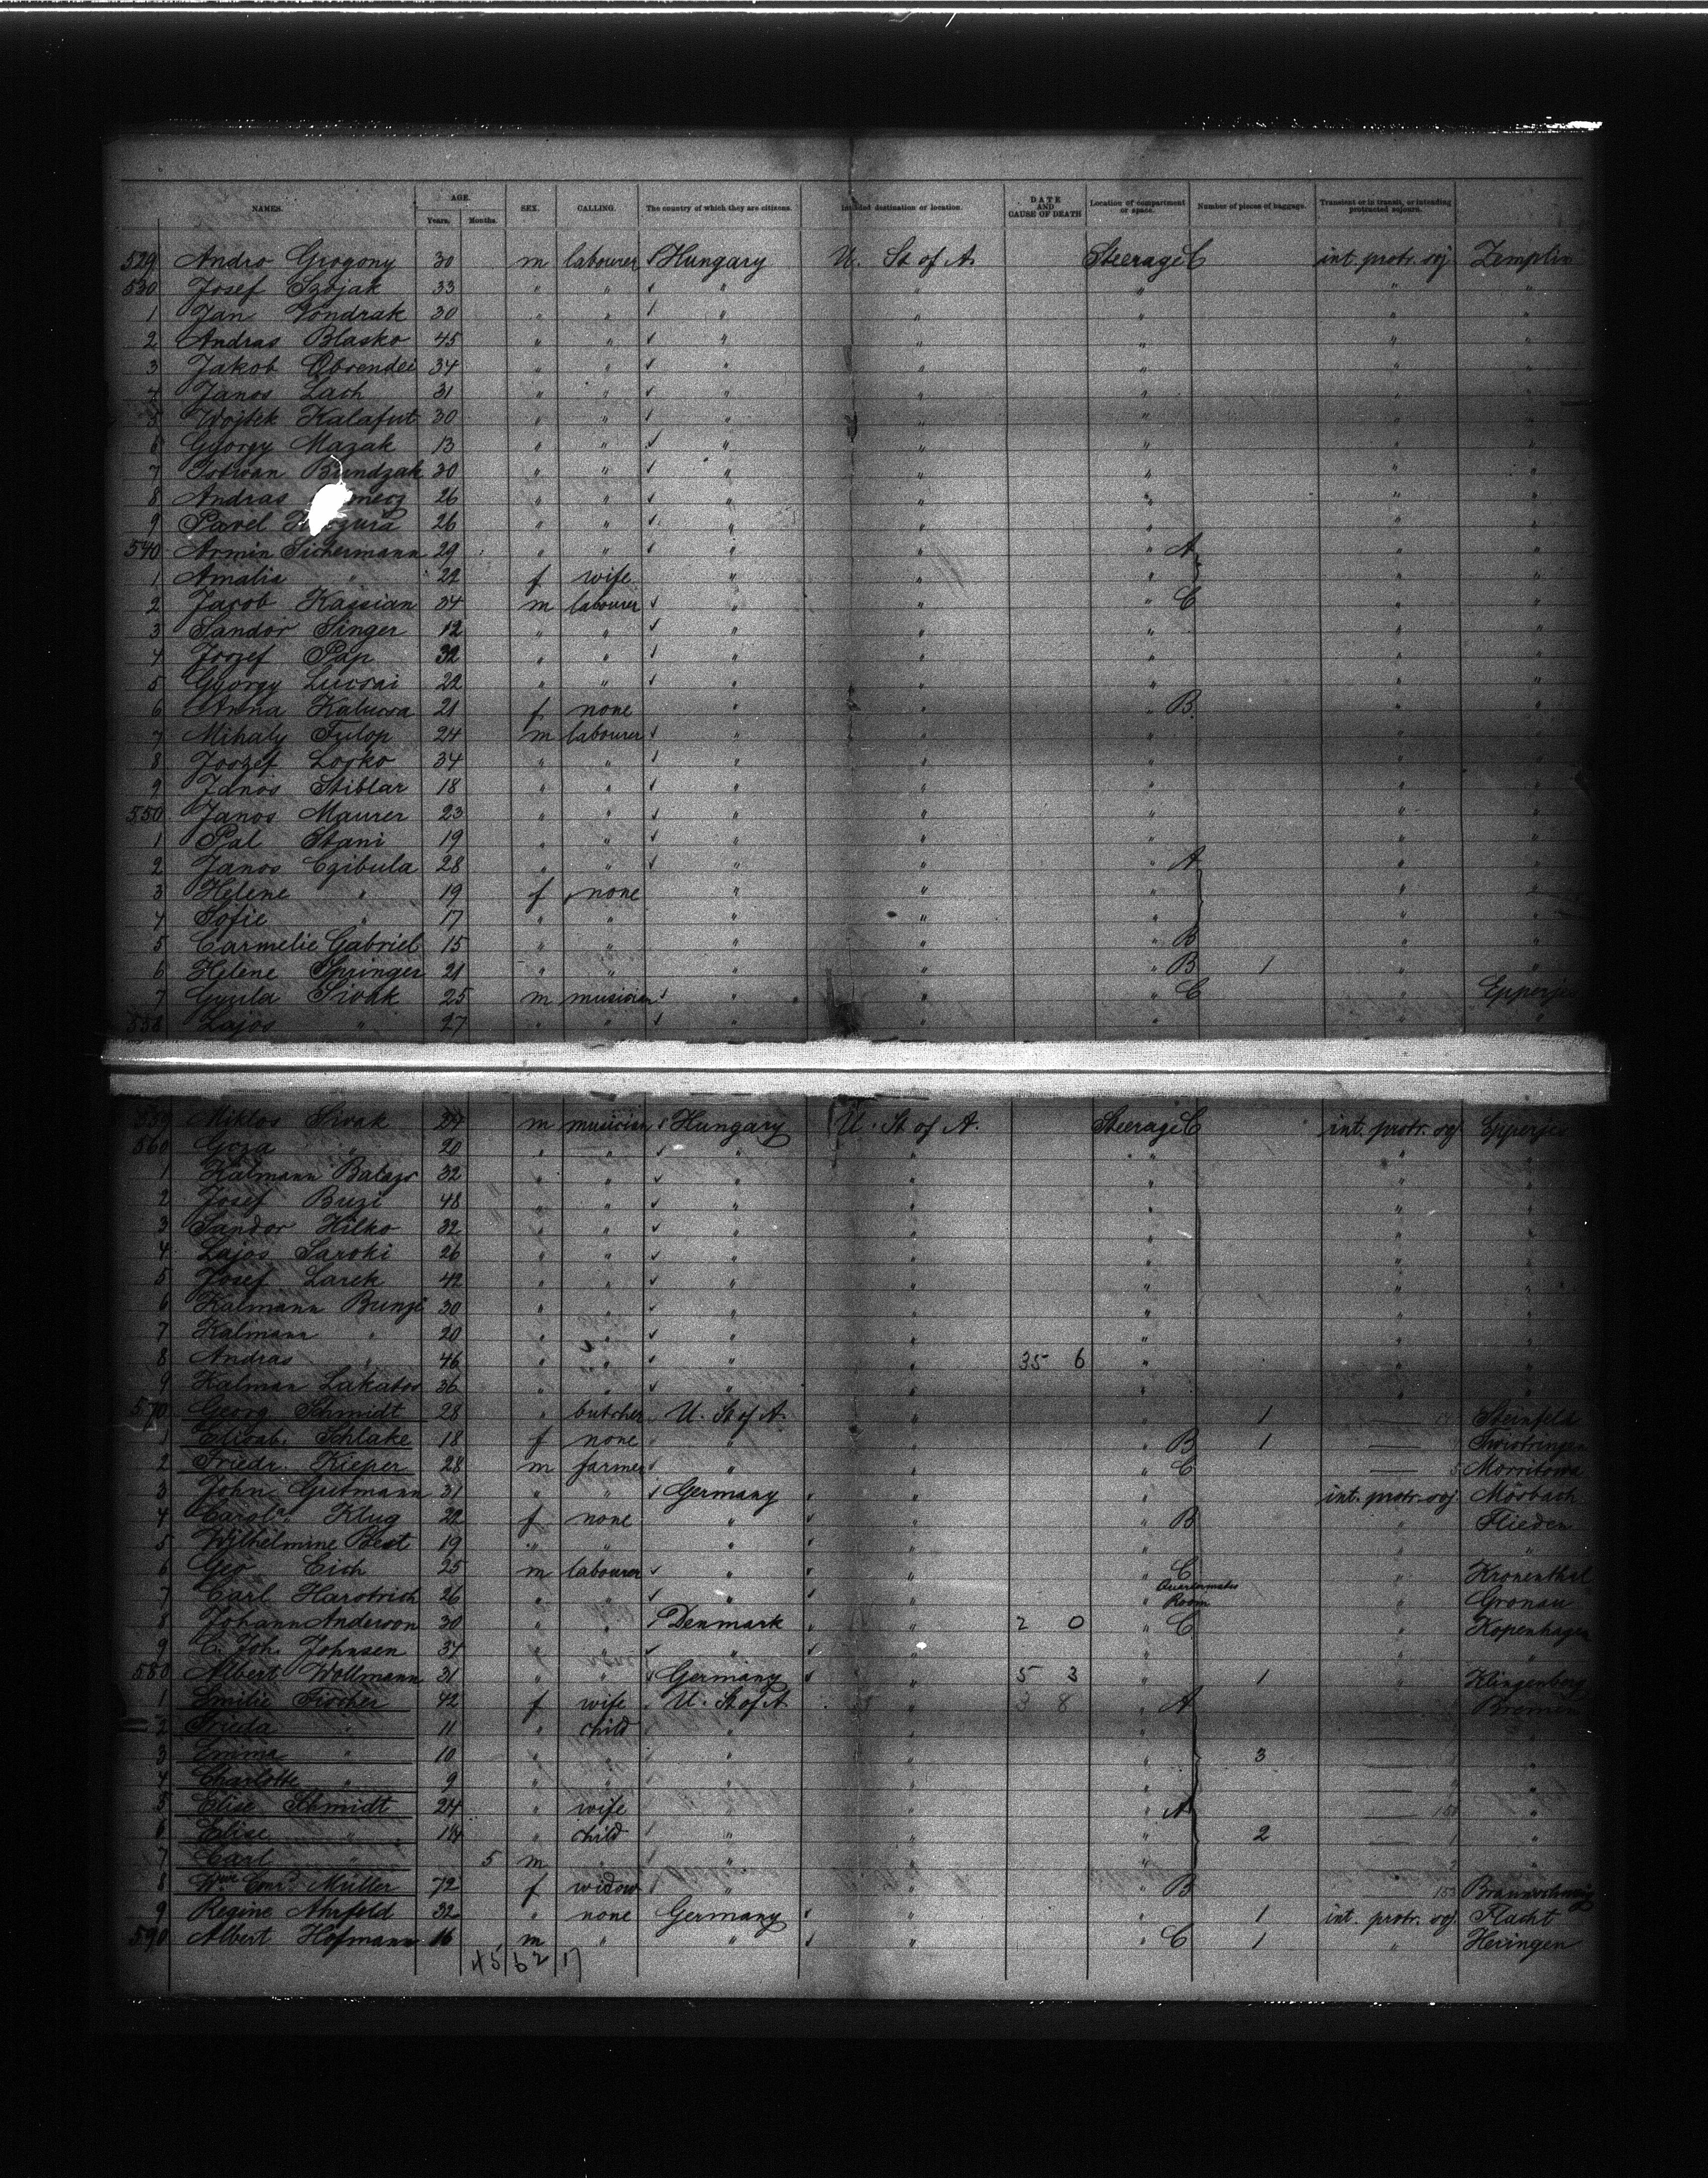 NAMES. AGE. Years. Months. SEX. CALLING. The country of which they are citizens. Intended destination or location. DATE AND CAUSE OF DEATH Location of compartment or space. Number of pieces of baggage. Transient or in transit, or intending protracted sojourn.
529 Andro Grogony 30 m labourer Hungary U. St of A. Steerage C int. protr. soj. Zemplin
530 Josef Szojak 33 " " " " " " "
1 Jan Vondrak 30 " " " " " " "
2 Andras Blasko 45 " " " " " " "
3 Jakob Obrendei 34 " " " " " " "
4 Janos Lach 31 " " " " " " "
5 Wojtek Kalafut 30 " " " " " " "
6 György Mazak 13 " " " " " " "
7 Istwan Bundzak 30 " " " " " " "
8 Andras 26 " " " " " " "
9 Pavel 26 " " " " " " "
540 Armin Sichermann 29 " " " " " A " "
1 Amalia " 22 f wife " " " " "
2 Jacob Kassian 34 m labourer " " " C " "
3 Sandor Singer 12 " " " " " " "
4 Jozef Pap 32 " " " " " " "
5 György Lucsai 22 " " " " " " "
6 Anna Kalucsa 21 f none " " " B " "
7 Mihaly Fulop 24 m labourer " " " " "
8 Joozef Losko 34 " " " " " " "
9 Janos Stiblar 18 " " " " " " "
550 Janos Maurer 23 " " " " " " "
1 Pal Stani 19 " " " " " " "
2 Janos Czibula 28 " " " " " A " "
3 Helene " 19 f none " " " " "
4 Sofie " 17 " " " " " " "
5 Carmelie Gabriel 15 " " " " " B " "
6 Helene Springer 21 " " " " " B 1 " "
7 Gyula Sivak 25 m musician " " " C " Epperjes
558 Lajos " 27 " " " " " " "
559 Miklos Sivak 24 m musician Hungary U. St of A. Steerage C int. protr. soj. Epperjes
560 Geza " 20 " " " " " " "
1 Kalmann Balazs 32 " " " " " " "
2 Josef Buzi 48 " " " " " " "
3 Sandor Hilko 32 " " " " " " "
4 Lajos Saroki 26 " " " " " " "
5 Josef Larek 42 " " " " " " "
6 Kalmann Bunzi 30 " " " " " " "
7 Kalmann " 20 " " " " " " "
8 Andras " 46 " " " " 35 6 " " "
9 Kalman Lakatos 36 " " " " " " "
570 Georg Schmidt 28 " butcher U. St of A. " " 1 — Steinfeld
1 Elisab. Schlake 18 f none " " " B 1 — Twistringen
2 Friedr. Kieper 28 m farmer " " " C — Morristown
3 John Gutmann 31 " " Germany " " int. protr. soj. Mosbach
4 Carol. Klug 22 f none " " " B " Flieden
5 Wilhelmine Best 19 " " " " " " "
6 Geo Eich 25 m labourer " " " C " Kronenthal
7 Carl Harstrich 26 " " " " " Quartermates Room " Gronau
8 Johann Anderson 30 " " Denmark " 2 0 " C " Kopenhagen
9 C. Joh. Johnsen 34 " " " " " " "
580 Albert Wollmann 31 " " Germany " 5 3 " 1 " Klingenberg
1 Emilie Fischer 42 f wife U. St of A " 3 8 " A — Bremen
2 Frieda " 11 " child " " " — "
3 Emma " 10 " " " " " 3 — "
4 Charlotte " 9 " " " " " — "
5 Elise Schmidt 24 " wife " " " A — "
6 Elise " " child " " " 2 — "
7 Carl " 5 m " " " " — "
8 Müller 72 f widow " " " B — Braunschweig
9 Regine Ahrfeld 32 " none Germany " " 1 int. protr. soj. Flacht
590 Albert Hofmann 16 m " " " " C 1 " Heringen
45/62/17